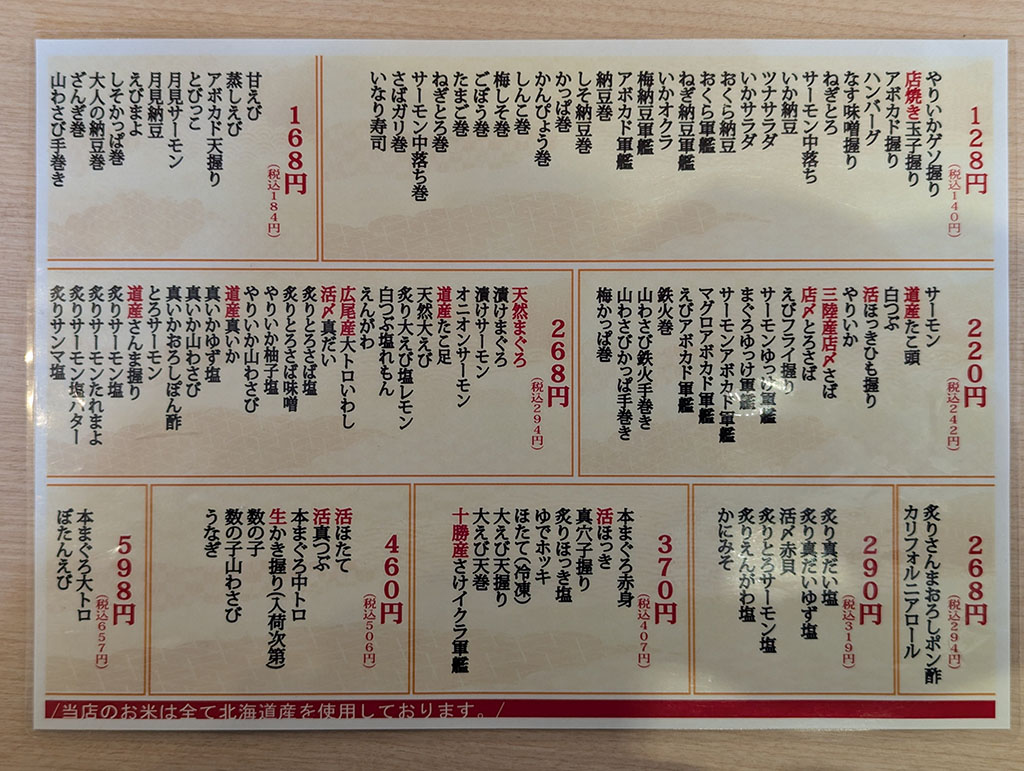 128円
(税込140円)
やりいかゲソ握り
店焼き玉子握り
アボカド握り
ハンバーグ
なす味噌握り
ねぎとろ
サーモン中落ち
いか納豆
ツナサラダ
いかサラダ
おくら納豆
おくら軍艦
ねぎ納豆軍艦
いかオクラ
梅納豆軍艦
アボカド軍艦
納豆巻
しそ納豆巻
かっぱ巻
かんぴょう巻
しんこ巻
梅しそ巻
ごぼう巻
たまご巻
ねぎとろ巻
サーモン中落ち巻
さばガリ巻
いなり寿司
168円
(税込184円)
甘えび
蒸しえび
アボカド天握り
とびっこ
月見サーモン
月見納豆
えびまよ
しそかっぱ巻
大人の納豆巻
ざんぎ巻
山わさび手巻き
220円
(税込242円)
サーモン
道産たこ頭
白つぶ
活ほっきひも握り
やりいか
三陸産店〆さば
店〆とろさば
えびフライ握り
サーモンゆっけ軍艦
まぐろゆっけ軍艦
サーモンアボカド軍艦
マグロアボカド軍艦
えびアボカド軍艦
鉄火巻
山わさび鉄火手巻き
山わさびかっぱ手巻き
梅かっぱ巻
268円
(税込294円)
天然まぐろ
漬けまぐろ
漬けサーモン
オニオンサーモン
道産たこ足
天然大えび
炙り大えび塩レモン
白つぶ塩れもん
えんがわ
広尾産大トロいわし
活〆真だい
炙りとろさば塩
炙りとろさば味噌
やりいか柚子塩
やりいか山わさび
道産真いか
真いかゆず塩
真いか山わさび
真いかおろしぽん酢
とろサーモン
道産さんま握り
炙りサーモン塩
炙りサーモンたれまよ
炙りサーモン塩バター
炙りサンマ塩
268円
(税込294円)
炙りさんまおろしポン酢
カリフォルニアロール
290円
(税込319円)
炙り真だい塩
炙り真だいゆず塩
活〆赤貝
炙りとろサーモン塩
炙りえんがわ塩
かにみそ
370円
(税込407円)
本まぐろ赤身
活ほっき
真穴子握り
炙りほっき塩
ゆでホッキ
ほたて(冷凍)
大えび天握り
大えび天巻
十勝産さけイクラ軍艦
460円
(税込506円)
活ほたて
活真つぶ
本まぐろ中トロ
生かき握り(入荷次第)
数の子
数の子山わさび
うなぎ
598円
(税込657円)
本まぐろ大トロ
ぼたんえび
/当店のお米は全て北海道産を使用しております。/